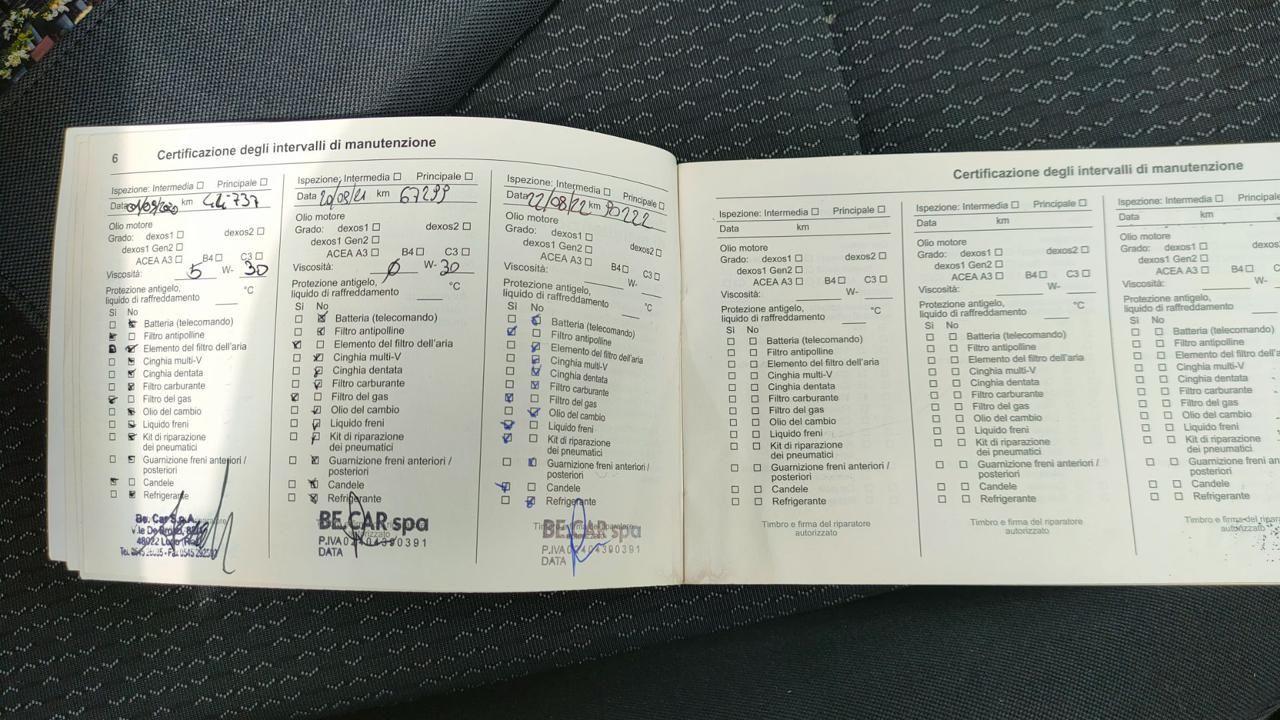 6 Certificazione degli intervalli di manutenzione
Ispezione: Intermedia Principale
Data km 44.737
Olio motore
Grado: dexos1 dexos2
dexos1 Gen2
ACEA A3 B4 C3
Viscosità: 5 W- 30
Protezione antigelo,
liquido di raffreddamento °C
Sì No
Batteria (telecomando)
Filtro antipolline
Elemento del filtro dell'aria
Cinghia multi-V
Cinghia dentata
Filtro carburante
Filtro del gas
Olio del cambio
Liquido freni
Kit di riparazione
dei pneumatici
Guarnizione freni anteriori /
posteriori
Candele
Refrigerante
Be. Car S.p.A.
Ispezione: Intermedia Principale
Data 20/08/21 km 67299
Olio motore
Grado: dexos1 dexos2
dexos1 Gen2
ACEA A3 B4 C3
Viscosità: 0 W- 30
Protezione antigelo,
liquido di raffreddamento °C
Sì No
Batteria (telecomando)
Filtro antipolline
Elemento del filtro dell'aria
Cinghia multi-V
Cinghia dentata
Filtro carburante
Filtro del gas
Olio del cambio
Liquido freni
Kit di riparazione
dei pneumatici
Guarnizione freni anteriori /
posteriori
Candele
Refrigerante
BE CAR spa
P.IVA 02404390391
DATA
Ispezione: Intermedia Principale
Data 22/08/22 km 90222
Olio motore
Grado: dexos1 dexos2
dexos1 Gen2
ACEA A3 B4 C3
Viscosità: W-
Protezione antigelo,
liquido di raffreddamento °C
Sì No
Batteria (telecomando)
Filtro antipolline
Elemento del filtro dell'aria
Cinghia multi-V
Cinghia dentata
Filtro carburante
Filtro del gas
Olio del cambio
Liquido freni
Kit di riparazione
dei pneumatici
Guarnizione freni anteriori /
posteriori
Candele
Refrigerante
BE CAR spa
P.IVA 02404390391
DATA
Certificazione degli intervalli di manutenzione
Ispezione: Intermedia Principale
Data km
Olio motore
Grado: dexos1 dexos2
dexos1 Gen2
ACEA A3 B4 C3
Viscosità: W-
Protezione antigelo,
liquido di raffreddamento °C
Sì No
Batteria (telecomando)
Filtro antipolline
Elemento del filtro dell'aria
Cinghia multi-V
Cinghia dentata
Filtro carburante
Filtro del gas
Olio del cambio
Liquido freni
Kit di riparazione
dei pneumatici
Guarnizione freni anteriori /
posteriori
Candele
Refrigerante
Timbro e firma del riparatore
autorizzato
Ispezione: Intermedia Principale
Data km
Olio motore
Grado: dexos1 dexos2
dexos1 Gen2
ACEA A3 B4 C3
Viscosità: W-
Protezione antigelo,
liquido di raffreddamento °C
Sì No
Batteria (telecomando)
Filtro antipolline
Elemento del filtro dell'aria
Cinghia multi-V
Cinghia dentata
Filtro carburante
Filtro del gas
Olio del cambio
Liquido freni
Kit di riparazione
dei pneumatici
Guarnizione freni anteriori /
posteriori
Candele
Refrigerante
Timbro e firma del riparatore
autorizzato
Ispezione: Intermedia
Data km
Olio motore
Grado: dexos1
dexos1 Gen2
ACEA A3 B4
Viscosità: W-
Protezione antigelo,
liquido di raffreddamento
Sì No
Batteria (telecomando)
Filtro antipolline
Elemento del filtro dell'a
Cinghia multi-V
Cinghia dentata
Filtro carburante
Filtro del gas
Olio del cambio
Liquido freni
Kit di riparazione
dei pneumatici
Guarnizione freni anteriori
posteriori
Candele
Refrigerante
Timbro e firma del riparatore
autorizzato